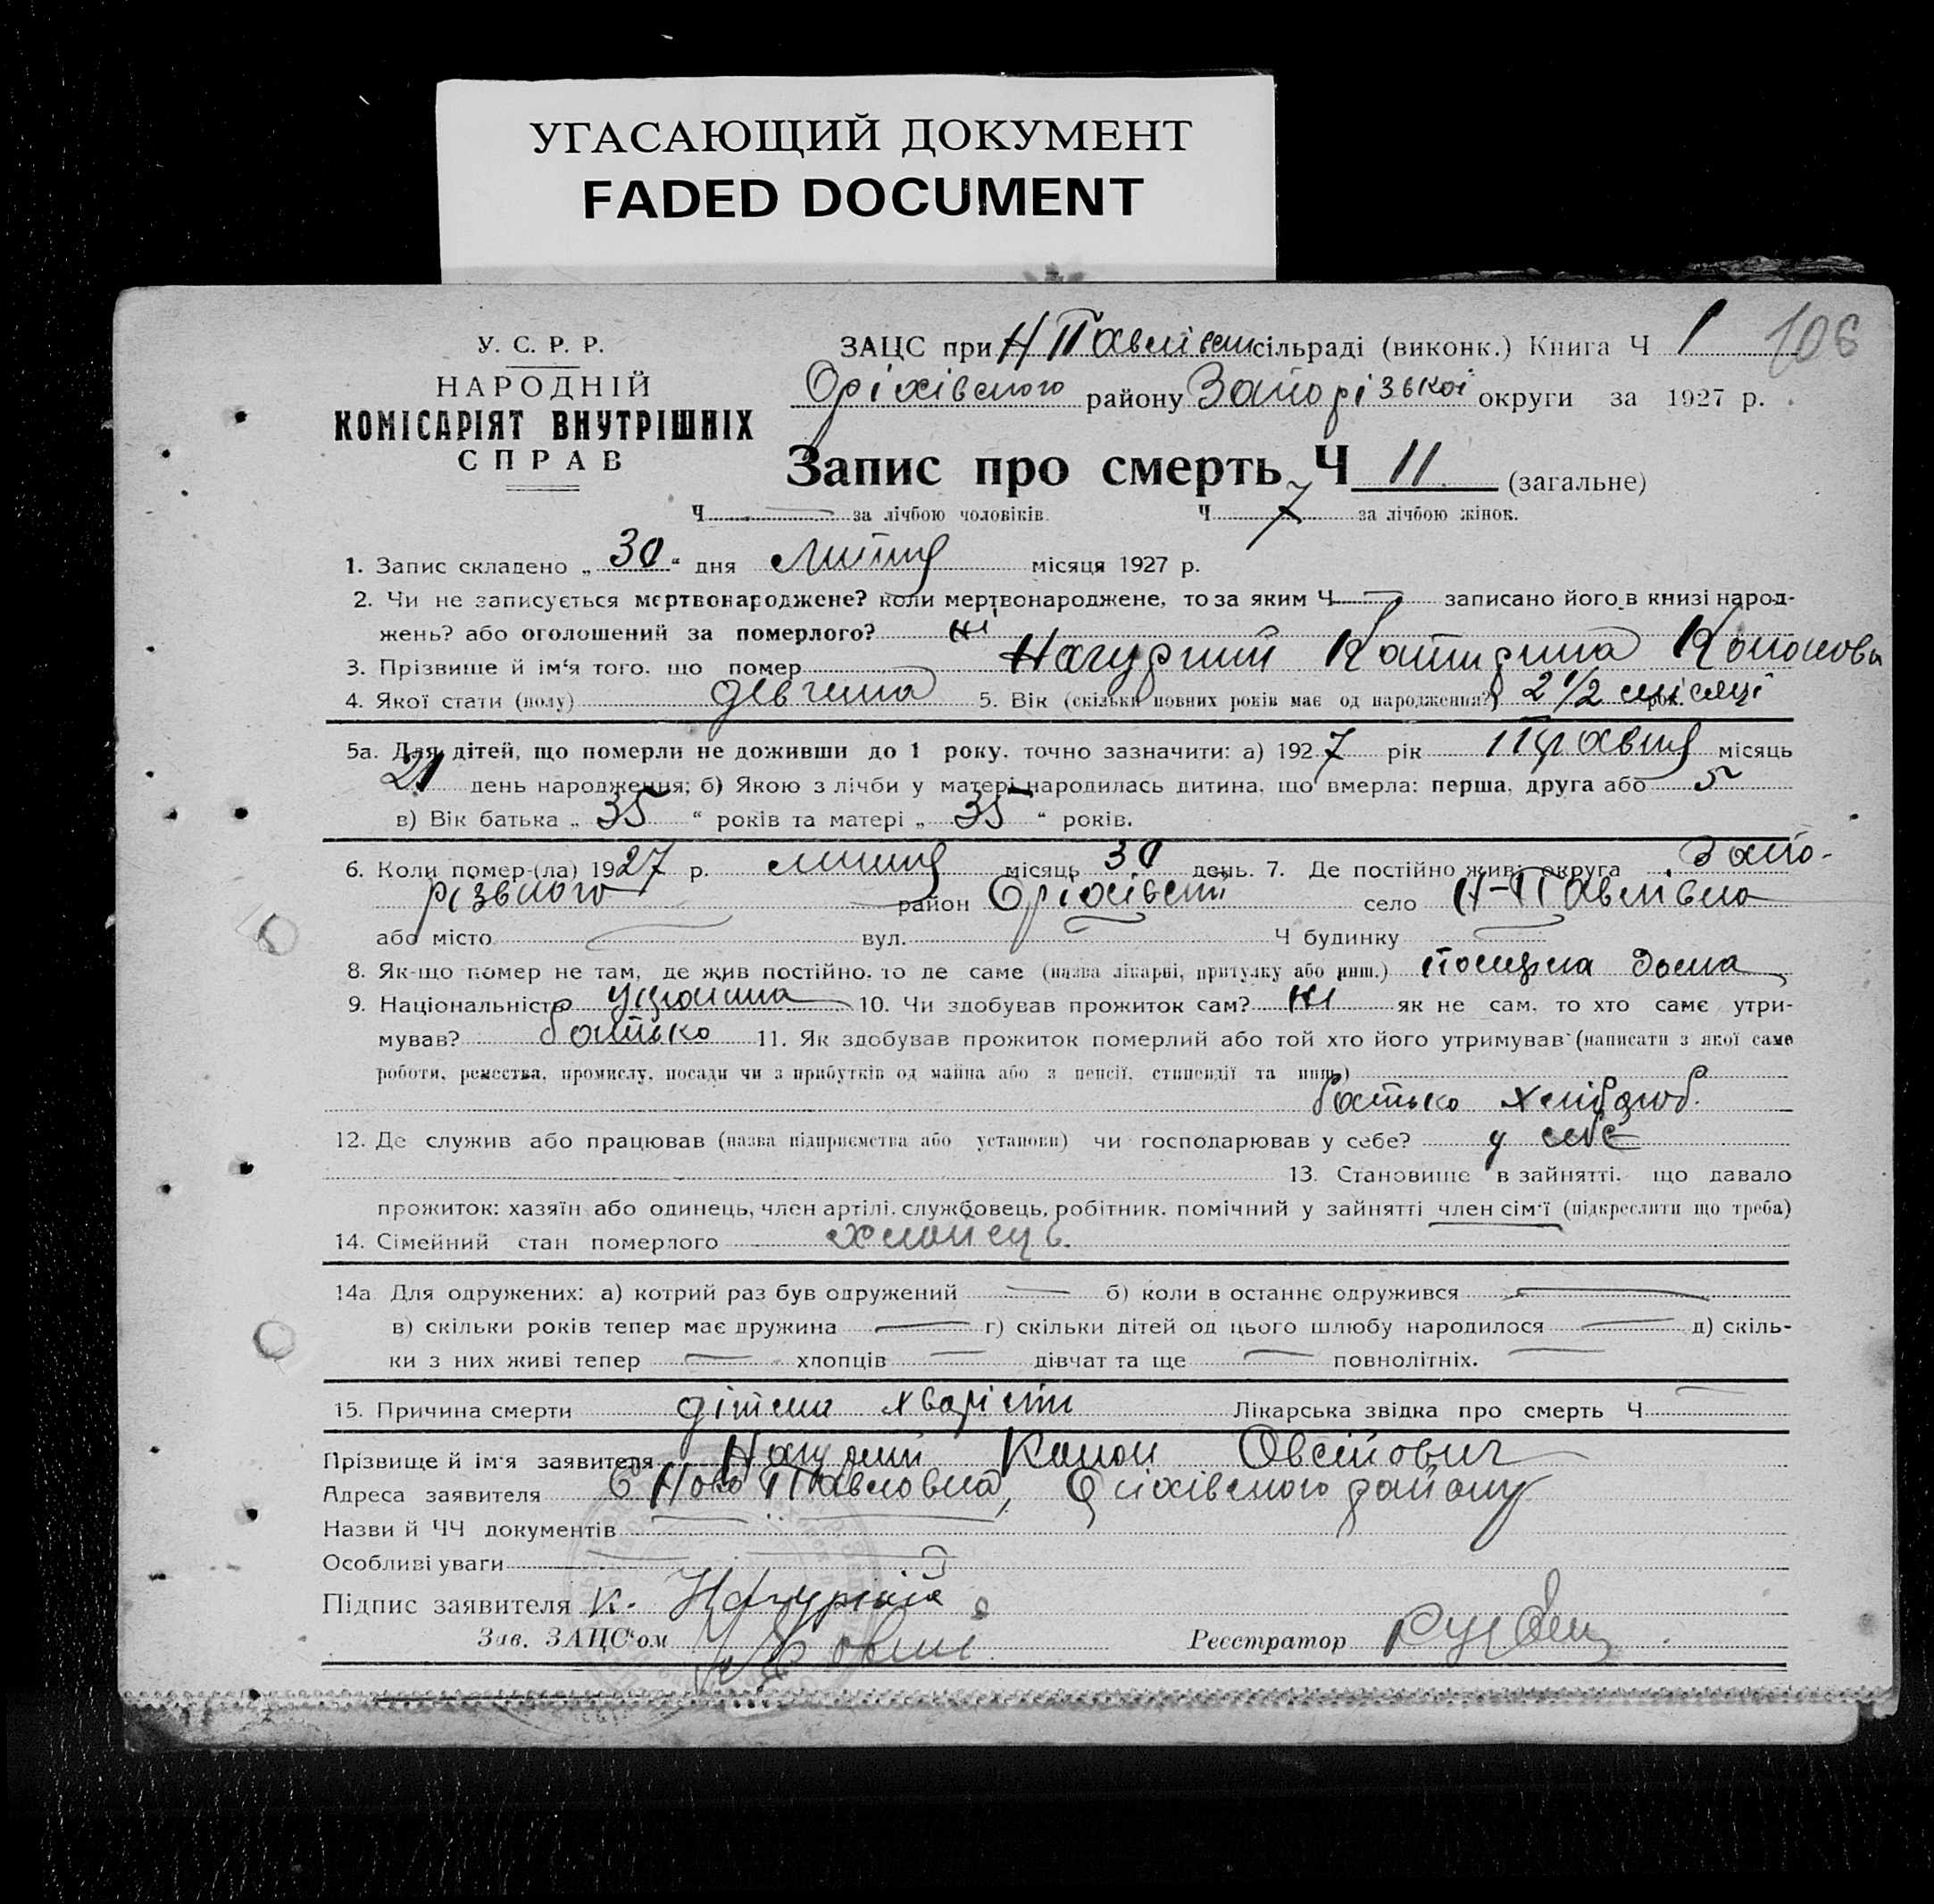 УГАСАЮЩИЙ ДОКУМЕНТ
FADED DOCUMENT
У. С. Р. Р.
НАРОДНІЙ
КОМІСАРІЯТ ВНУТРІШНІХ
СПРАВ
ЗАЦС при Н Павлівськ сільраді (виконк.) Книга Ч 1 108
Оріхівського району Запорізької округи за 1927 р.
Запис про смерть Ч 11. (загальне)
Ч — за лічбою чоловіків. Ч 7 за лічбою жінок.
1. Запис складено „ 30 “ дня липня місяця 1927 р.
2. Чи не записується мертвонароджене? коли мертвонароджене, то за яким Ч — записано його в книзі народ-
жень? або оголошений за померлого? ні
3. Прізвище й ім'я того, що помер Нагурний Катирина Кононова
4. Якої стати (полу) дівчина 5. Вік (скільки повних років має од народження?) 2 1/2 місяці рок.
5а. Для дітей, що померли не доживши до 1 року, точно зазначити: а) 1927 рік Травня місяць
21 день народження; б) Якою з лічби у матері народилась дитина, що вмерла: перша, друга або 5
в) Вік батька „ 35 “ років та матері „ 35 “ років.
6. Коли помер-(ла) 1927 р. липня місяць 30 день. 7. Де постійно жив: округа Запо-
різького район Оріхівськ село Н-Павлівка
або місто — вул. — Ч будинку —
8. Як-що помер не там, де жив постійно, то де саме (назва лікарні, притулку або инш.) померла дома
9. Національність українка 10. Чи здобував прожиток сам? ні як не сам, то хто саме утри-
мував? батько 11. Як здобував прожиток померлий або той хто його утримував (написати з якої саме
роботи, ремества, промислу, посади чи з прибутків од майна або з пенсії, стипендії та инш.)
батько хліб роб.
12. Де служив або працював (назва підприємства або установи) чи господарював у себе? у себе
13. Становище в зайнятті, що давало
прожиток: хазяїн або одинець, член артілі, службовець, робітник, помічний у зайнятті член сім'ї (підкреслити що треба)
14. Сімейний стан померлого хлопець.
14а Для одружених: а) котрий раз був одружений — б) коли в останнє одружився —
в) скільки років тепер має дружина — г) скільки дітей од цього шлюбу народилося — д) скіль-
ки з них живі тепер — хлопців — дівчат та ще — повнолітніх. —
15. Причина смерти дітська хварість Лікарська звідка про смерть Ч —
Прізвище й ім'я заявителя Нагурний Конон Овсійович
Адреса заявителя с Ново Павловка, Оріхівського району
Назви й ЧЧ документів —
Особливі уваги —
Підпис заявителя К. Нагурний
Зав. ЗАЦС'ом
Реєстратор